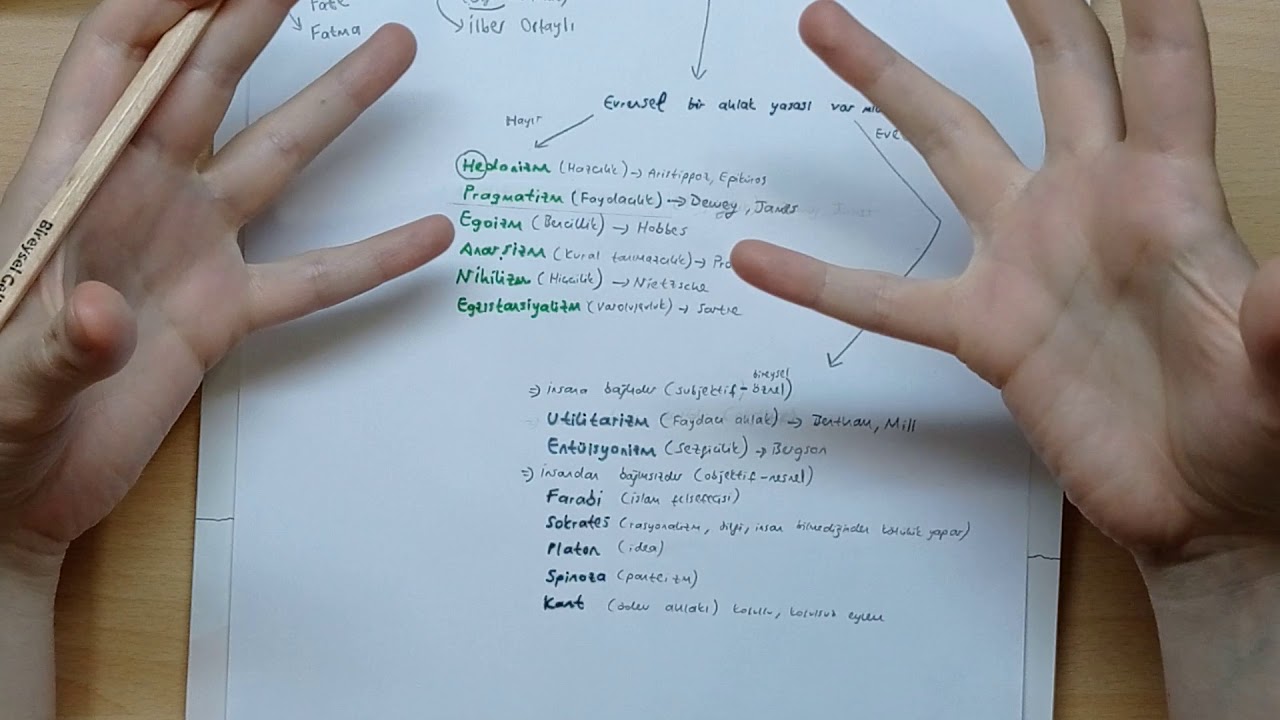 Fatma
İlber Ortaylı
Evrensel bir ahlak yasası var mı
Hayır
Hedonizm (Hazcılık) → Aristippos, Epikuros
Pragmatizm (Faydacılık) → Dewey, James
Egoizm (Bencillik) → Hobbes
Anarşizm (Kural tanımazlık) →
Nihilizm (Hiççilik) → Nietzsche
Egzistansiyalizm (Varoluşçuluk) → Sartre
bireysel
⇒ insana bağlıdır (subjektif - öznel)
Utilitarizm (Faydacı ahlak) → Bentham, Mill
Entülsyonizm (Sezgicilik) → Bergson
⇒ insandan bağımsızdır (objektif - nesnel)
Farabi (islam felsefecisi)
Sokrates (rasyonalizm, bilgi, insan bilmediğinden kötülük yapar)
Platon (idea)
Spinoza (panteizm)
Kant (ödev ahlakı) koşullu, koşulsuz eylem
Bireysel